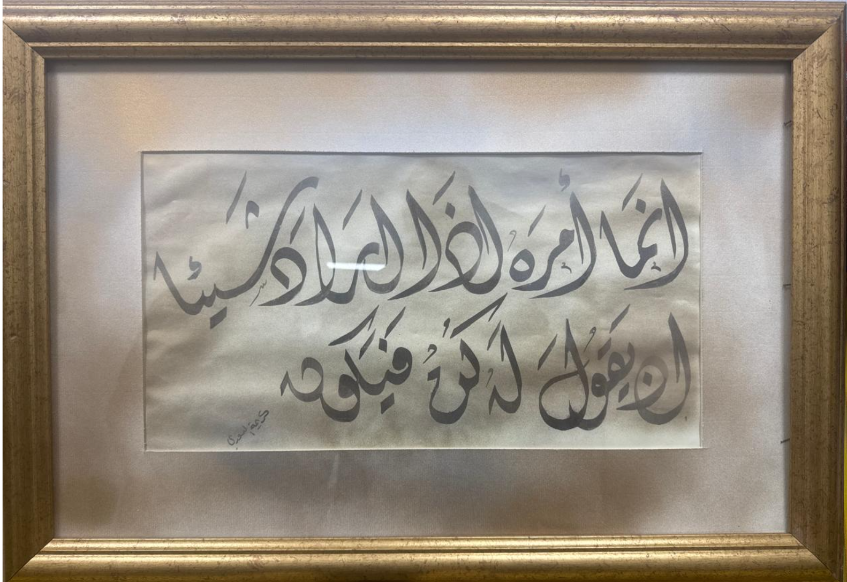 انما أمرهُ اذا اراد شيئا
ان يقول لهُ كنْ فيكون